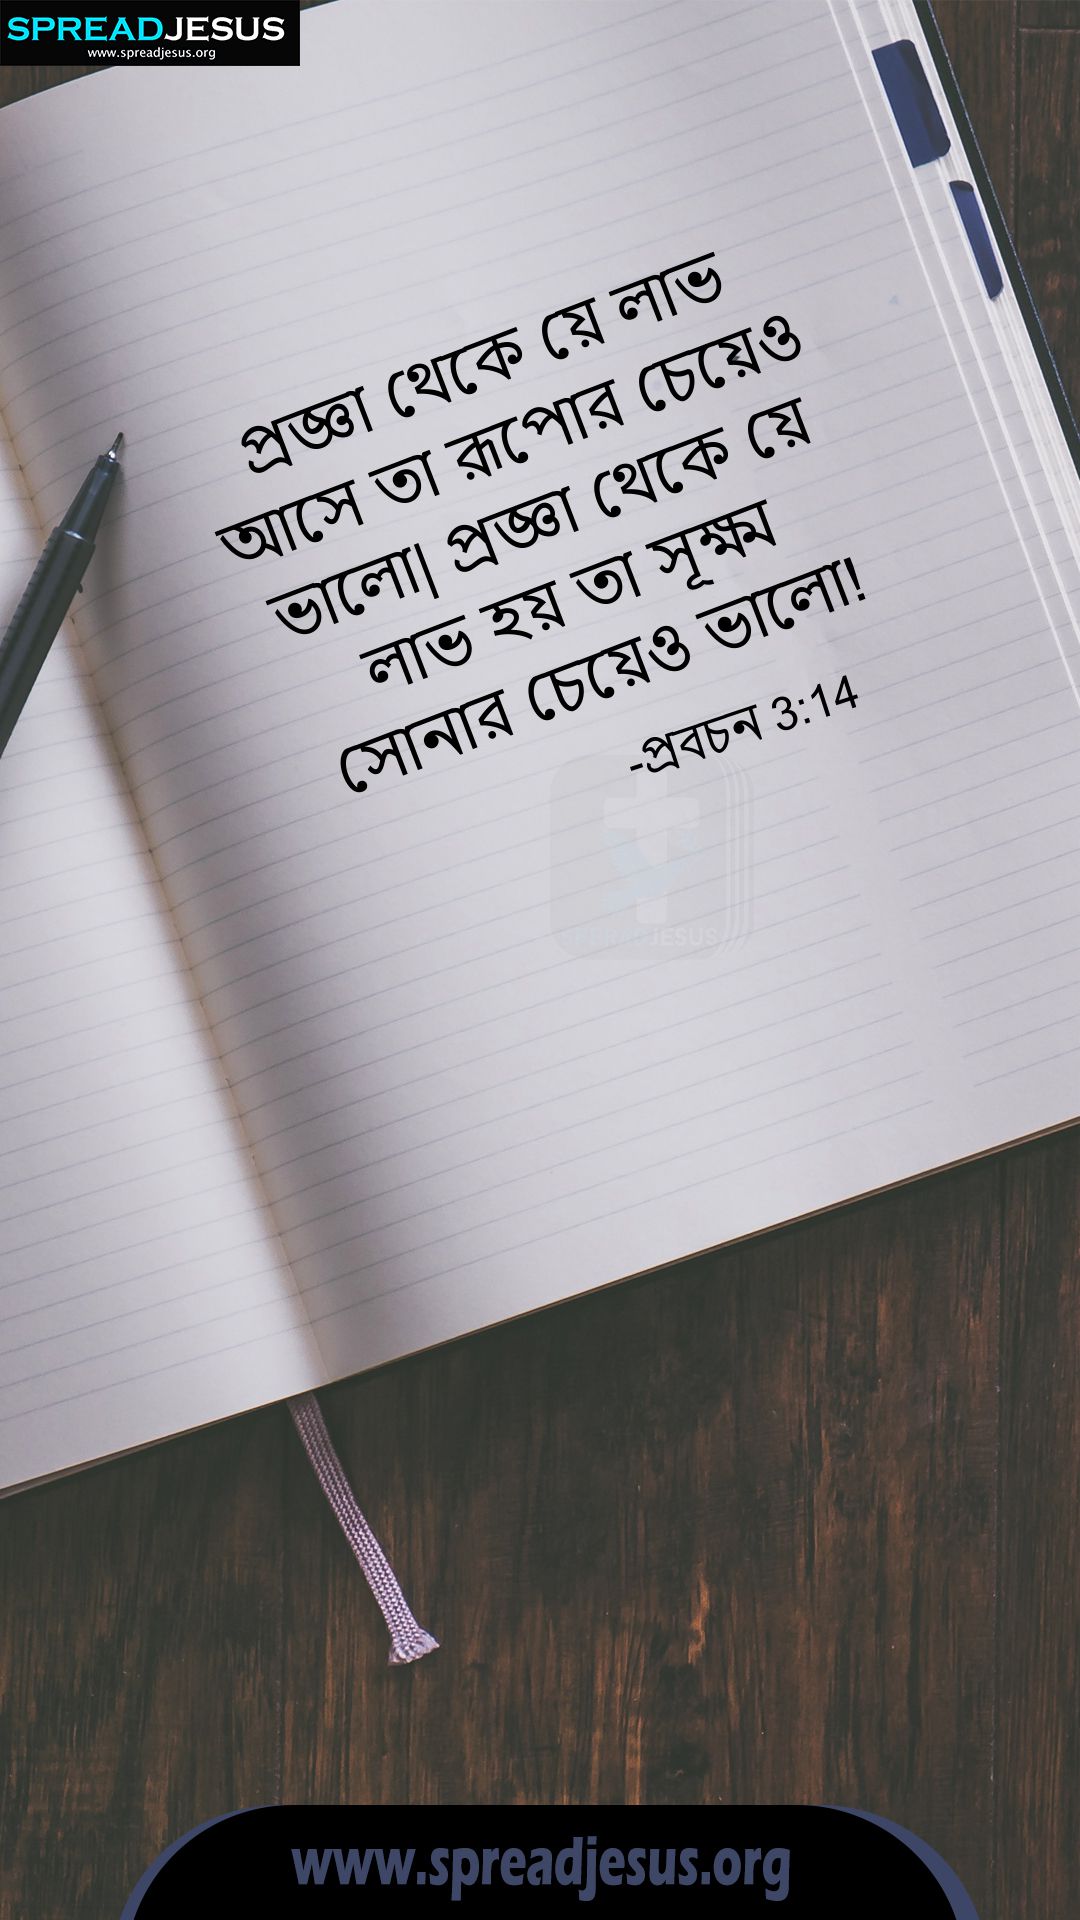 SPREADJESUS
www.spreadjesus.org
প্রজ্ঞা থেকে য়ে লাভ
আসে তা রূপোর চেয়েও
ভালো| প্রজ্ঞা থেকে য়ে
লাভ হয় তা সূক্ষ্ম
সোনার চেয়েও ভালো!
-প্রবচন 3:14
SPREADJESUS
www.spreadjesus.org